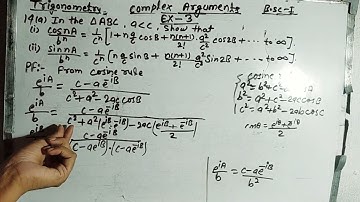 Trigonometry Complex Arguments B.sc-I
EX-3
19(a) In the ΔABC, a<c, show that
(i) cosnA/bⁿ = 1/cⁿ [1 + n a/c cosB + n(n+1)/2! a²/c² cos2B + ... to ∞].
(ii) sinnA/bⁿ = 1/cⁿ [n a/c sinB + n(n+1)/2! a²/c² sin2B + ... to ∞]
Pf:- From cosine rule
e^{iA}/b = c-ae^{-iB}/c²+a²-2accosB
e^{iA}/b = c-ae^{-iB}/c²+a²(e^{iB}·e^{-iB})-2ac(e^{iB}+e^{-iB}/2)
c-ae^{-iB}/(c-ae^{iB})·(c-ae^{-iB})
cosine
b²=a²+c²-2accosB
c²=a²+b²-2abcosc
cosB = e^{iB}+e^{-iB}/2
e^{iA}/b = c-ae^{-iB}/b²